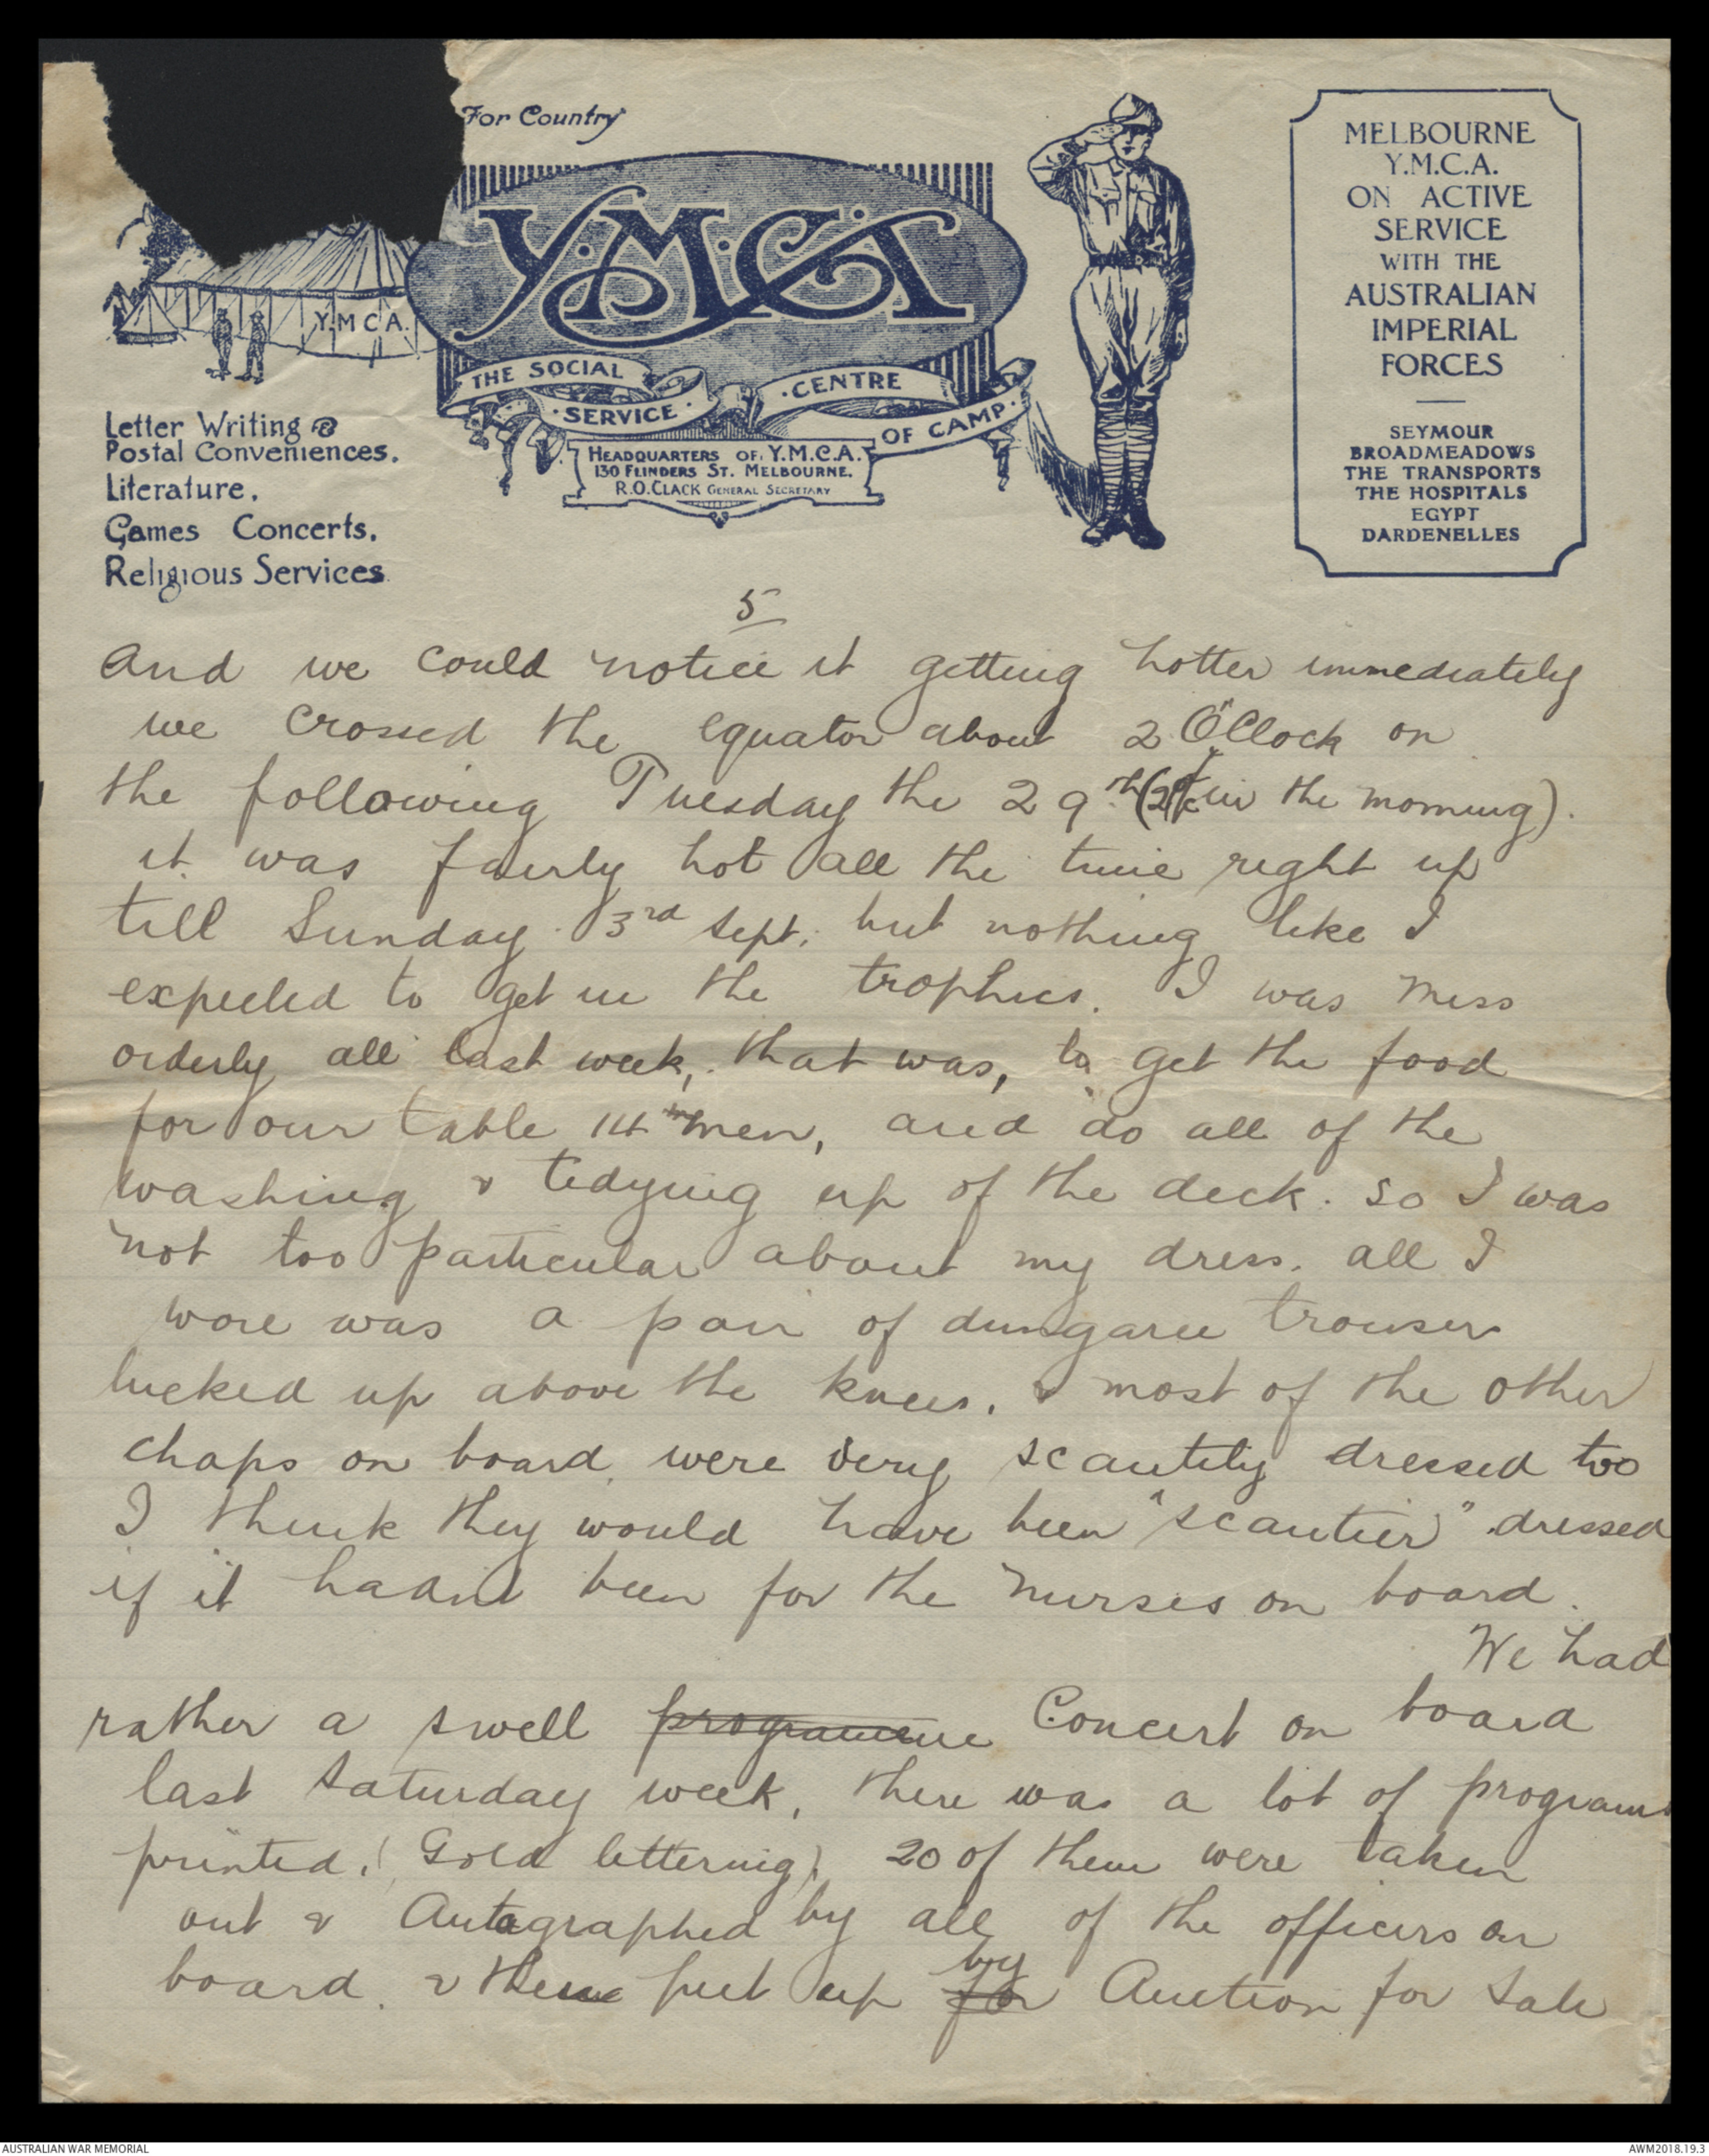 For Country
Y.M.C.A.
Y.M.C.A
THE SOCIAL
SERVICE
CENTRE
OF CAMP
HEADQUARTERS OF Y.M.C.A.
130 FLINDERS ST. MELBOURNE.
R.O.CLACK GENERAL SECRETARY
Letter Writing &
Postal Conveniences.
Literature.
Games Concerts.
Religious Services
MELBOURNE
Y.M.C.A.
ON ACTIVE
SERVICE
WITH THE
AUSTRALIAN
IMPERIAL
FORCES
SEYMOUR
BROADMEADOWS
THE TRANSPORTS
THE HOSPITALS
EGYPT
DARDENELLES
5
And we could notice it getting hotter immediately
we crossed the equator about 2 O'Clock on
the following Tuesday the 29th (in the morning).
it was fairly hot all the time right up
till Sunday 3rd Sept. but nothing like I
expected to get in the trophics. I was mess
orderly all last week, that was, to get the food
for our table 14 men, and do all of the
washing & tidying up of the deck. so I was
not too particular about my dress. all I
wore was a pair of dungaree trousers
tucked up above the knees. & most of the other
chaps on board were very scantily dressed too
I think they would have been "scantier" dressed
if it hadnt been for the nurses on board.
We had
rather a swell programme Concert on board
last Saturday week, there was a lot of programs
printed. (Gold lettering). 20 of them were taken
out & Autographed by all of the officers on
board. & then put up for by Auction for Sale
AUSTRALIAN WAR MEMORIAL
AWM2018.19.3